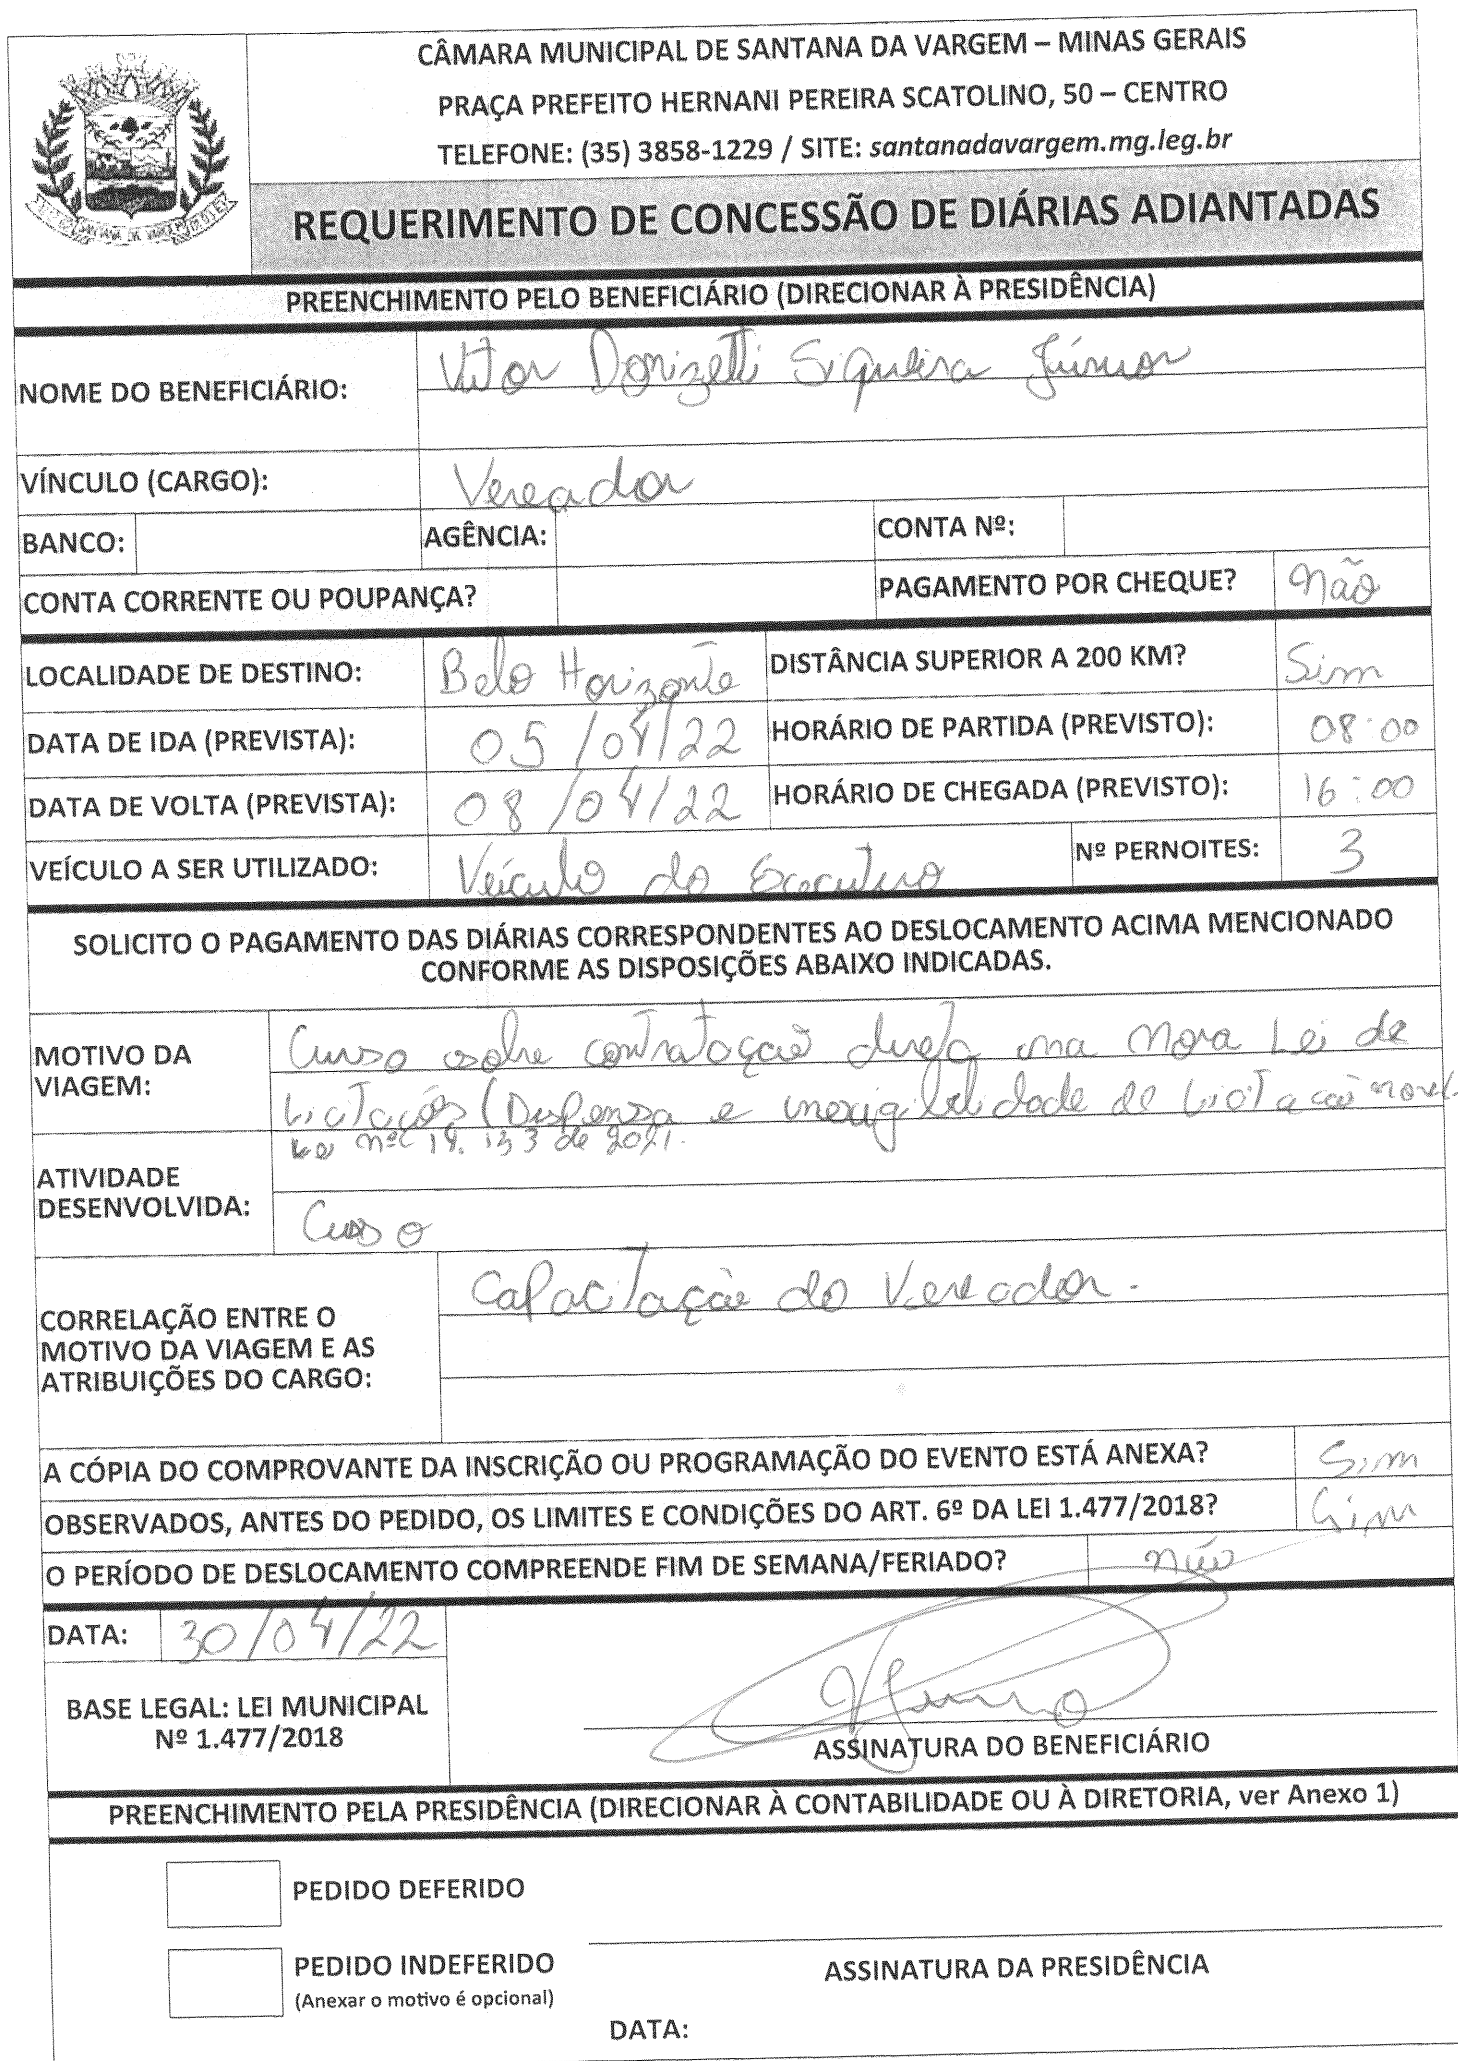 CÂMARA MUNICIPAL DE SANTANA DA VARGEM – MINAS GERAIS
PRAÇA PREFEITO HERNANI PEREIRA SCATOLINO, 50 – CENTRO
TELEFONE: (35) 3858-1229 / SITE: santanadavargem.mg.leg.br
REQUERIMENTO DE CONCESSÃO DE DIÁRIAS ADIANTADAS
PREENCHIMENTO PELO BENEFICIÁRIO (DIRECIONAR À PRESIDÊNCIA)
NOME DO BENEFICIÁRIO: Vitor Donizetti Siqueira Júnior
VÍNCULO (CARGO): Vereador
BANCO: AGÊNCIA: CONTA Nº:
CONTA CORRENTE OU POUPANÇA? PAGAMENTO POR CHEQUE? Não
LOCALIDADE DE DESTINO: Belo Horizonte DISTÂNCIA SUPERIOR A 200 KM? Sim
DATA DE IDA (PREVISTA): 05/04/22 HORÁRIO DE PARTIDA (PREVISTO): 08:00
DATA DE VOLTA (PREVISTA): 08/04/22 HORÁRIO DE CHEGADA (PREVISTO): 16:00
VEÍCULO A SER UTILIZADO: Veículo do Executivo Nº PERNOITES: 3
SOLICITO O PAGAMENTO DAS DIÁRIAS CORRESPONDENTES AO DESLOCAMENTO ACIMA MENCIONADO
CONFORME AS DISPOSIÇÕES ABAIXO INDICADAS.
MOTIVO DA
VIAGEM:
Curso sobre contratação direta na Nova Lei de
Licitações (Dispensa e inexigibilidade de Licitação
Lei nº 14.133 de 2021.
ATIVIDADE
DESENVOLVIDA:
Curso
CORRELAÇÃO ENTRE O
MOTIVO DA VIAGEM E AS
ATRIBUIÇÕES DO CARGO:
Capacitação do Vereador.
A CÓPIA DO COMPROVANTE DA INSCRIÇÃO OU PROGRAMAÇÃO DO EVENTO ESTÁ ANEXA? Sim
OBSERVADOS, ANTES DO PEDIDO, OS LIMITES E CONDIÇÕES DO ART. 6º DA LEI 1.477/2018? Sim
O PERÍODO DE DESLOCAMENTO COMPREENDE FIM DE SEMANA/FERIADO? não
DATA: 30/04/22
BASE LEGAL: LEI MUNICIPAL
Nº 1.477/2018
ASSINATURA DO BENEFICIÁRIO
PREENCHIMENTO PELA PRESIDÊNCIA (DIRECIONAR À CONTABILIDADE OU À DIRETORIA, ver Anexo 1)
PEDIDO DEFERIDO
PEDIDO INDEFERIDO
(Anexar o motivo é opcional)
ASSINATURA DA PRESIDÊNCIA
DATA: